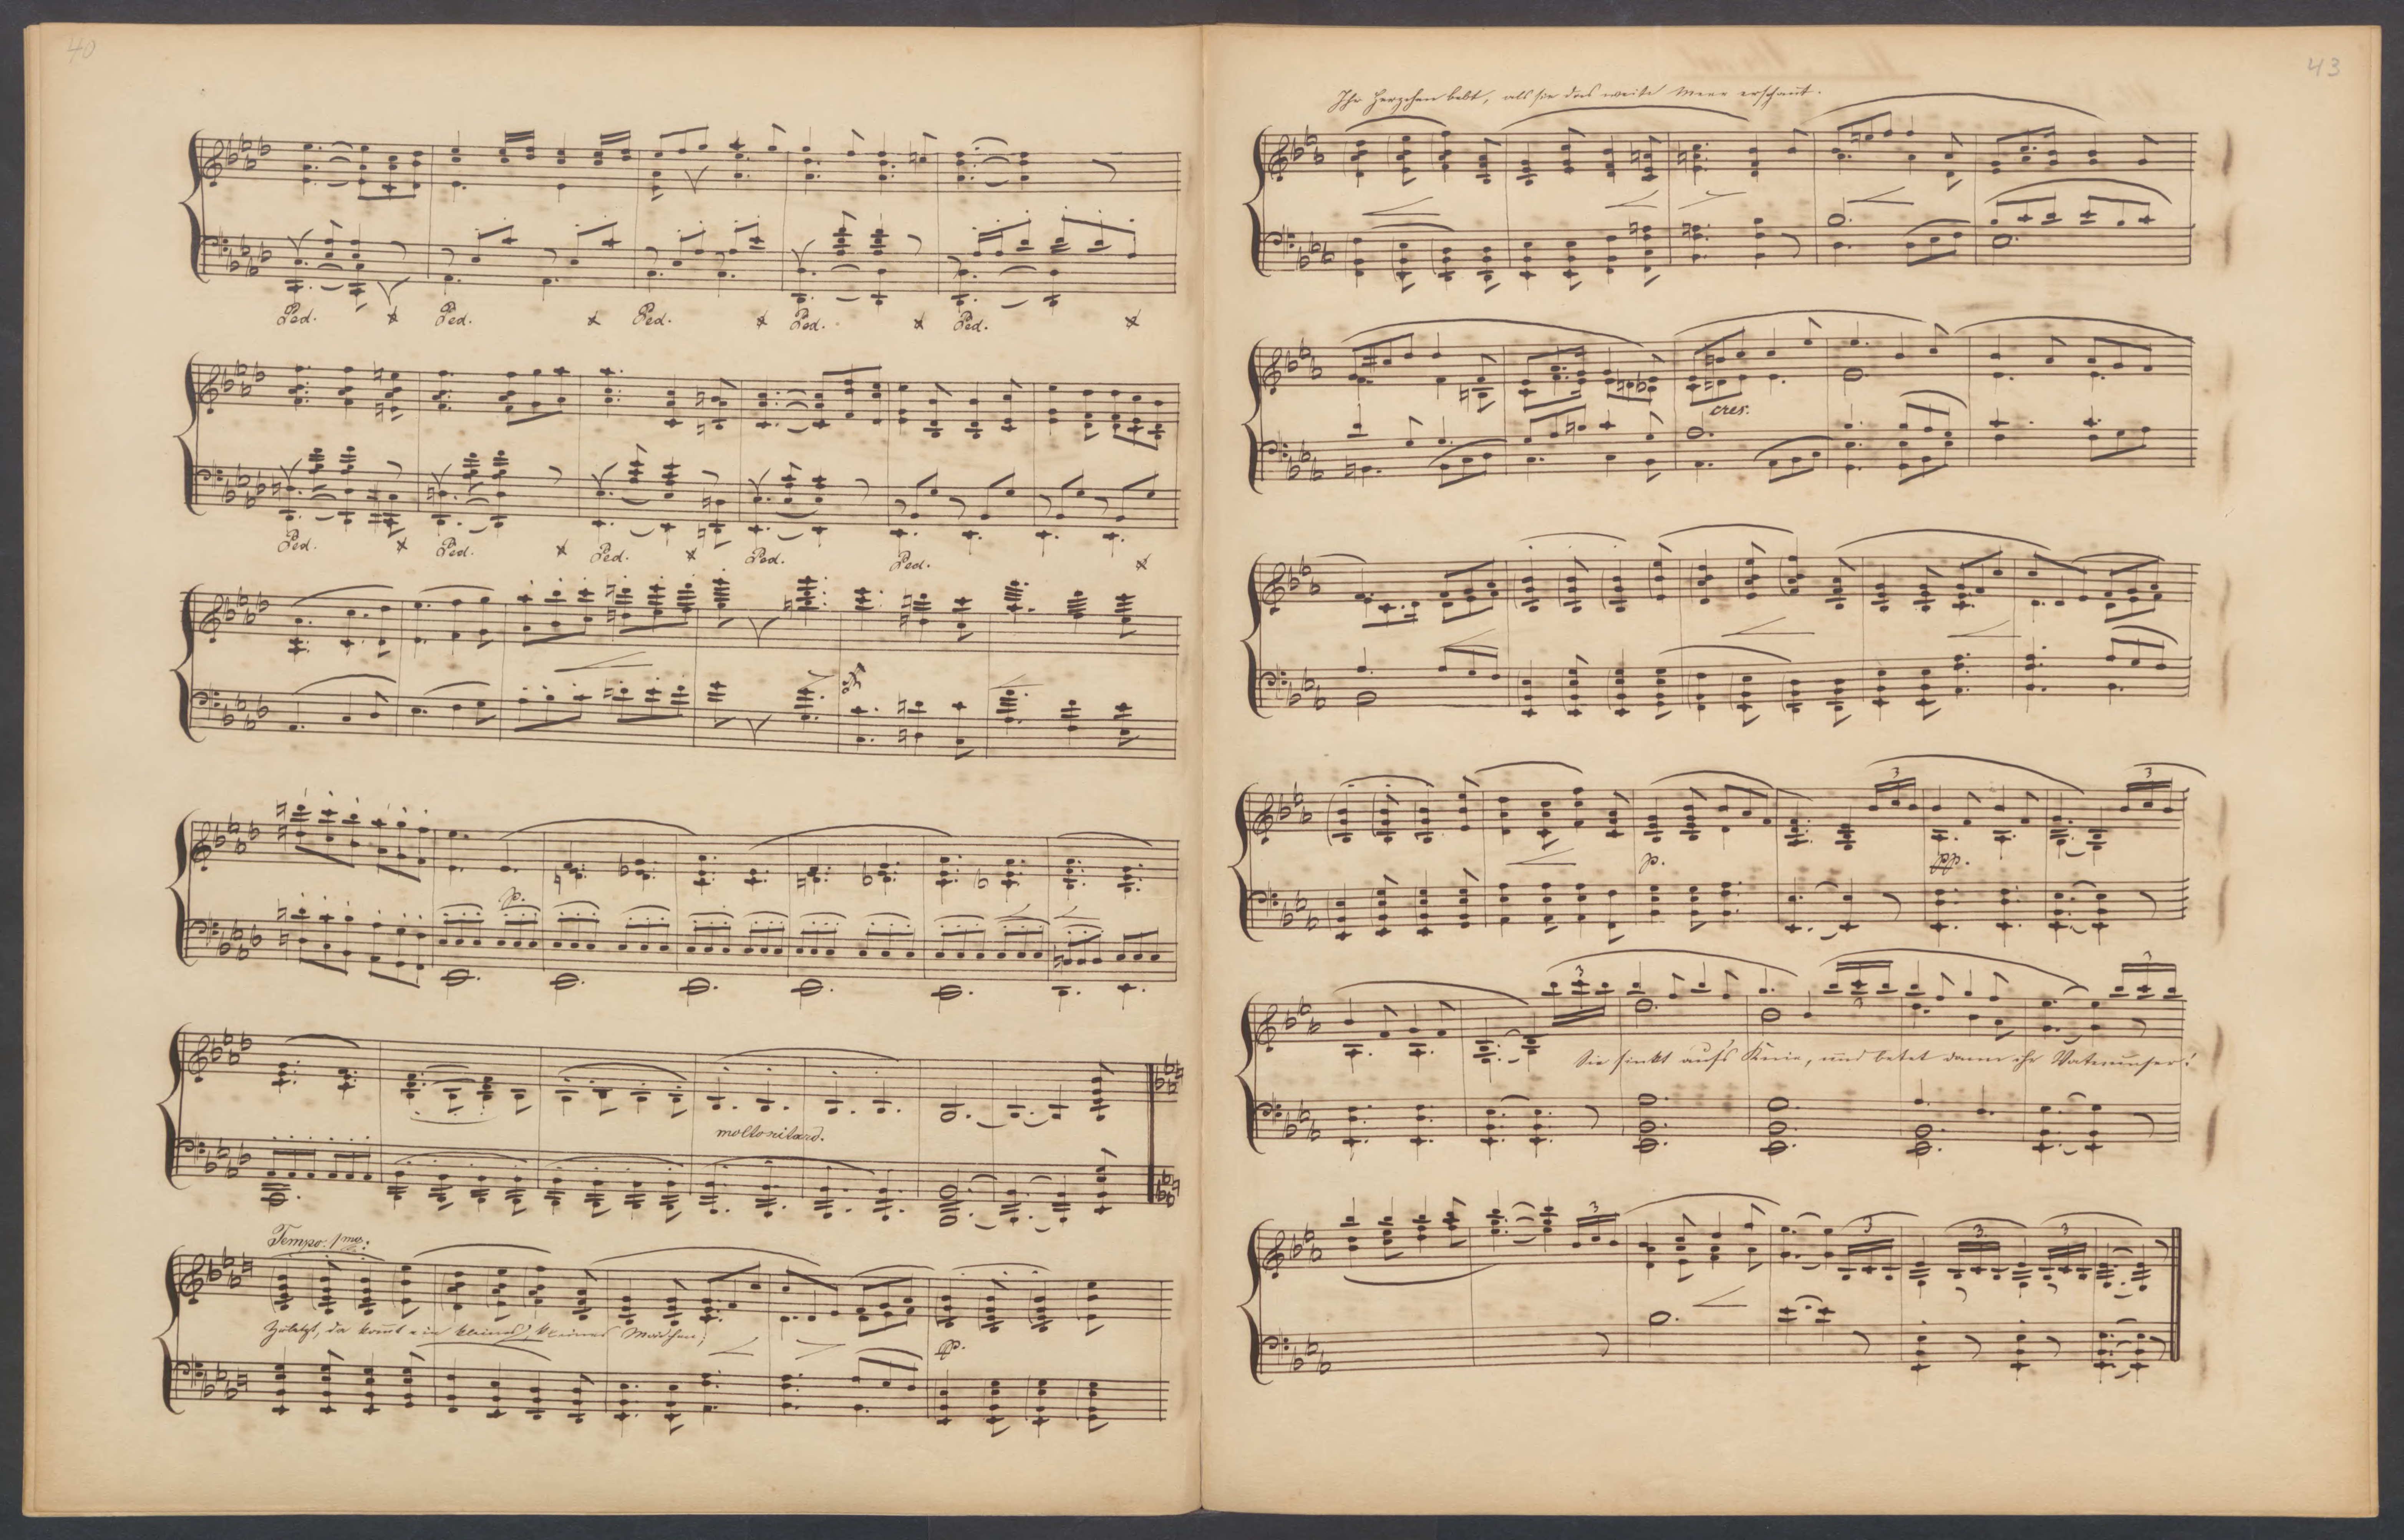 40
Ped. Ped. Ped. Ped. Ped.
Ped. Ped. Ped. Ped. Ped.
p.
molto ritard.
Tempo 1mo.
Zuletzt, da kom̄t ein kleines, kleines Mädchen;
pp.
43
Ihr Herzchen bebt, als sie das weite Meer erschaut.
cres.
3 3
p. pp.
3 3
Sie sinkt auf's Knie, und betet dann ihr Vaterunser!
3 3 3 3